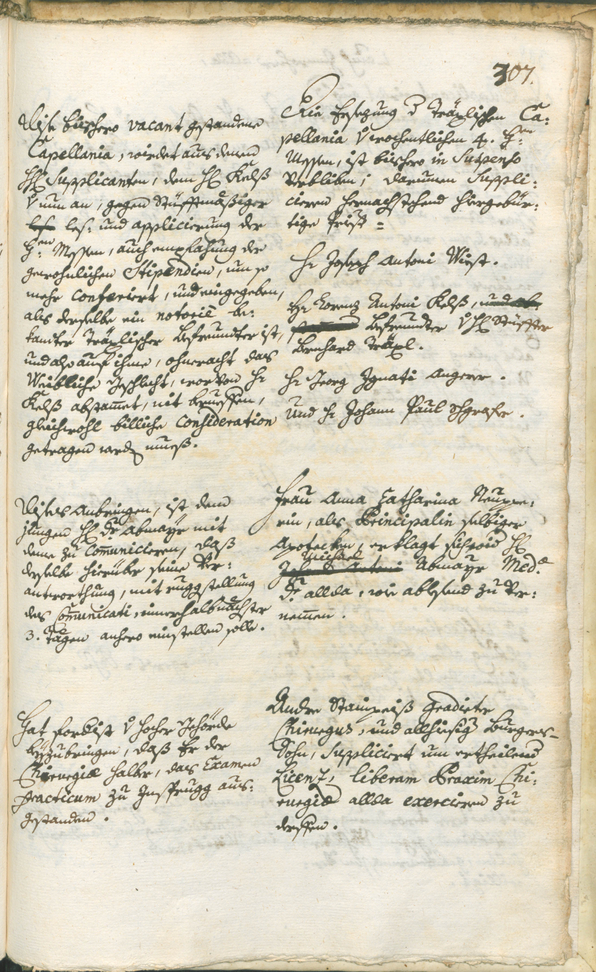 307.
Die Ersezung d Träxlischen Ca:
pellania V wochentlichen 4. H:
Messen, ist bishero in Suspenso
verbliben; darumen Supplis:
cieren hernachstehend hiergebür:
tige Priest =
Hr Joseph Antoni Wiest.
Hr Lorenz Antoni Kelß,
befreundter V H Stüffter
Bernhard Träxl.
Hr Georg Ignati Angerer.
Und Hr Johann Paul Schgraffer.
Dise bishero vacant gestandene
Capellania, würdet aus denen
HH Supplicanten, dem H Kelß
V nun an, gegen Stüfftmäßiger
les: und applicierung der
H: Messen, auch empfahung der
gewohnlichen Stipendien, um so
mehr conferiert, und eingegeben,
als derselbe ein notorie be:
kanter Träxlischer befreundter ist,
und also auf ihme, ohneracht das
Weibliche Geschlecht, wovon Hr
Kelß abstamet, nit
gleichwohl billiche Consideration
getragen werd mueß.
Frau Anna Catharina
erin, als Principalin selbiger
Apotecken, erklagt sich wid H
Abmayr Med.
Dr. allda, wie ablesend zu ver:
nemmen.
Dises Anbringen, ist dem
jungen H Dr Abmayr mit
deme zu Communicieren, daß
derselbe hierüber seine Ver:
antworthung, mit zuggstellung
des Communicati, innerhalb nächster
3. Tagen anhero einstellen solle.
Andre Stainpeiß gradierter
Chirurgus, und allhiesig Burgers-
Sohn, Suppliciert um ertheilend
Licenz, liberam Praxim Chi:
rurgiæ allda exercieren zu
derffen.
Hat vorderist V hocher Behörde
beyzubringen, daß Er der
Chirurgiæ halber, das Examen
practicum zu Insprugg aus:
gestanden.